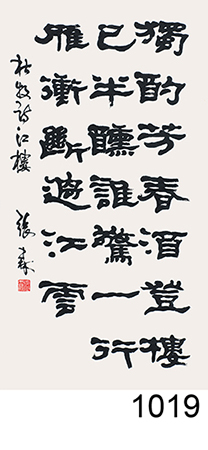 獨酌芳春酒登樓
已半醺誰驚一行
雁衝斷過江雲
杜牧詩江樓 張森
1019